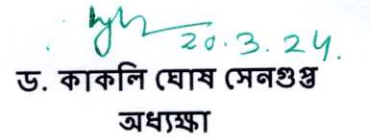 20.3.24.
ড. কাকলি ঘোষ সেনগুপ্ত
অধ্যক্ষা